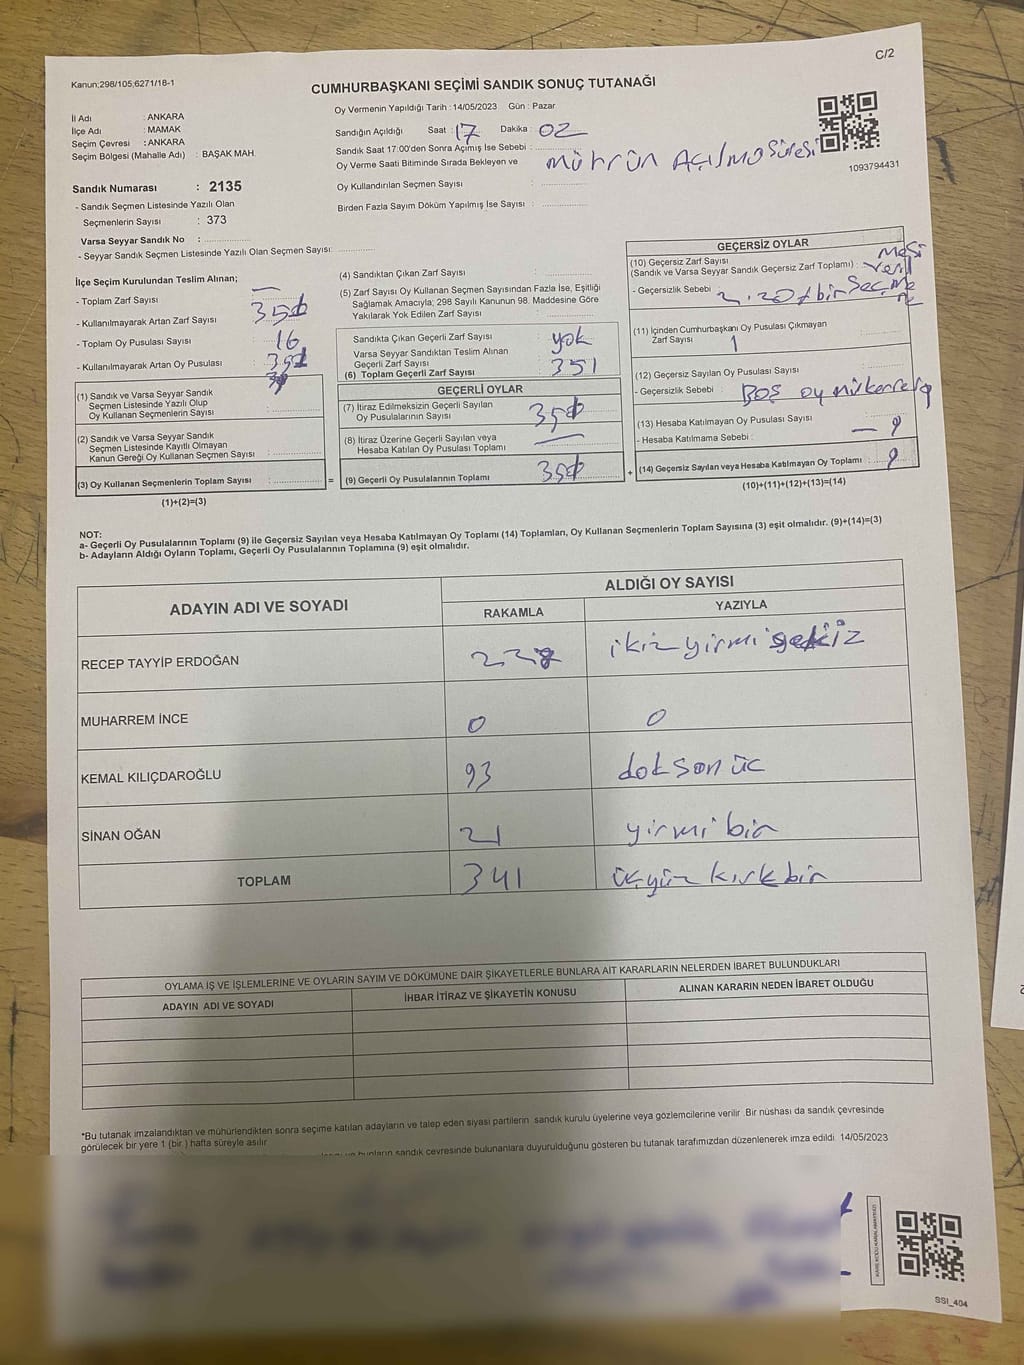 C/2
Kanun:298/105;6271/16-1
CUMHURBAŞKANI SEÇİMİ SANDIK SONUÇ TUTANAĞI
İl Adı : ANKARA
İlçe Adı : MAMAK
Seçim Çevresi : ANKARA
Seçim Bölgesi (Mahalle Adı) : BAŞAK MAH.
Sandık Numarası : 2135
- Sandık Seçmen Listesinde Yazılı Olan
Seçmenlerin Sayısı : 373
Varsa Seyyar Sandık No :
- Seyyar Sandık Seçmen Listesinde Yazılı Olan Seçmen Sayısı:
Oy Vermenin Yapıldığı Tarih : 14/05/2023 Gün : Pazar
Sandığın Açıldığı Saat : 17 Dakika : 02
Sandık Saat 17:00'den Sonra Açımış İse Sebebi :
Oy Verme Saati Bitiminde Sırada Bekleyen ve
mührün Açılma süresi
Oy Kullandırılan Seçmen Sayısı :
Birden Fazla Sayım Döküm Yapılmış İse Sayısı :
1093794431
İlçe Seçim Kurulundan Teslim Alınan;
- Toplam Zarf Sayısı : —
- Kullanılmayarak Artan Zarf Sayısı
- Toplam Oy Pusulası Sayısı : 16
- Kullanılmayarak Artan Oy Pusulası
(1) Sandık ve Varsa Seyyar Sandık
Seçmen Listesinde Yazılı Olup
Oy Kullanan Seçmenlerin Sayısı :
(2) Sandık ve Varsa Seyyar Sandık
Seçmen Listesinde Kayıtlı Olmayan
Kanun Gereği Oy Kullanan Seçmen Sayısı :
(3) Oy Kullanan Seçmenlerin Toplam Sayısı :
(1)+(2)=(3)
(4) Sandıktan Çıkan Zarf Sayısı :
(5) Zarf Sayısı Oy Kullanan Seçmen Sayısından Fazla İse, Eşitliği
Sağlamak Amacıyla; 298 Sayılı Kanunun 98. Maddesine Göre
Yakılarak Yok Edilen Zarf Sayısı :
Sandıkta Çıkan Geçerli Zarf Sayısı : yok
Varsa Seyyar Sandıktan Teslim Alınan
Geçerli Zarf Sayısı
(6) Toplam Geçerli Zarf Sayısı : 351
GEÇERLİ OYLAR
(7) İtiraz Edilmeksizin Geçerli Sayılan
Oy Pusulalarının Sayısı
(8) İtiraz Üzerine Geçerli Sayılan veya
Hesaba Katılan Oy Pusulası Toplamı : —
= (9) Geçerli Oy Pusulalarının Toplamı
GEÇERSİZ OYLAR
(10) Geçersiz Zarf Sayısı
(Sandık ve Varsa Seyyar Sandık Geçersiz Zarf Toplamı) :
- Geçersizlik Sebebi :
(11) İçinden Cumhurbaşkanı Oy Pusulası Çıkmayan
Zarf Sayısı : 1
(12) Geçersiz Sayılan Oy Pusulası Sayısı :
- Geçersizlik Sebebi : BOŞ oy
(13) Hesaba Katılmayan Oy Pusulası Sayısı :
- Hesaba Katılmama Sebebi : — 9
+ (14) Geçersiz Sayılan veya Hesaba Katılmayan Oy Toplamı : 9
(10)+(11)+(12)+(13)=(14)
NOT:
a- Geçerli Oy Pusulalarının Toplamı (9) ile Geçersiz Sayılan veya Hesaba Katılmayan Oy Toplamı (14) Toplamları, Oy Kullanan Seçmenlerin Toplam Sayısına (3) eşit olmalıdır. (9)+(14)=(3)
b- Adayların Aldığı Oyların Toplamı, Geçerli Oy Pusulalarının Toplamına (9) eşit olmalıdır.
ADAYIN ADI VE SOYADI
ALDIĞI OY SAYISI
RAKAMLA YAZIYLA
RECEP TAYYİP ERDOĞAN ikiz yirmi sekiz
MUHARREM İNCE 0 0
KEMAL KILIÇDAROĞLU 93 doksan üc
SİNAN OĞAN 21 yirmi bir
TOPLAM 341 üçyüz kırk bir
OYLAMA İŞ VE İŞLEMLERİNE VE OYLARIN SAYIM VE DÖKÜMÜNE DAİR ŞİKAYETLERLE BUNLARA AİT KARARLARIN NELERDEN İBARET BULUNDUKLARI
ADAYIN ADI VE SOYADI İHBAR İTİRAZ VE ŞİKAYETİN KONUSU ALINAN KARARIN NEDEN İBARET OLDUĞU
*Bu tutanak imzalandıktan ve mühürlendikten sonra seçime katılan adayların ve talep eden siyasi partilerin sandık kurulu üyelerine veya gözlemcilerine verilir Bir nüshası da sandık çevresinde
görülecek bir yere 1 (bir ) hafta süreyle asılır
bunların sandık çevresinde bulunanlara duyurulduğunu gösteren bu tutanak tarafımızdan düzenlenerek imza edildi. 14/05/2023
SSI_404